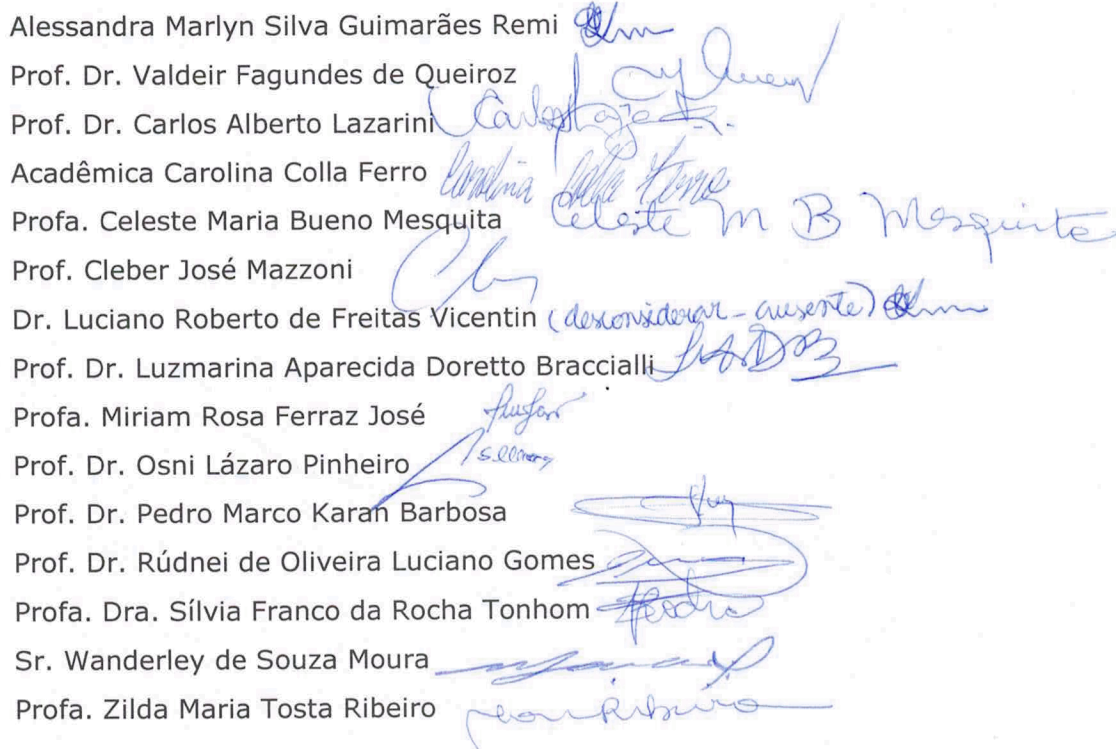 Alessandra Marlyn Silva Guimarães Remi
Prof. Dr. Valdeir Fagundes de Queiroz
Prof. Dr. Carlos Alberto Lazarini
Acadêmica Carolina Colla Ferro Carolina Colla Ferro
Profa. Celeste Maria Bueno Mesquita Celeste M B Mesquita
Prof. Cleber José Mazzoni
Dr. Luciano Roberto de Freitas Vicentin (desconsiderar - ausente)
Prof. Dr. Luzmarina Aparecida Doretto Braccialli
Profa. Miriam Rosa Ferraz José
Prof. Dr. Osni Lázaro Pinheiro
Prof. Dr. Pedro Marco Karan Barbosa
Prof. Dr. Rúdnei de Oliveira Luciano Gomes
Profa. Dra. Sílvia Franco da Rocha Tonhom
Sr. Wanderley de Souza Moura
Profa. Zilda Maria Tosta Ribeiro Ribeiro